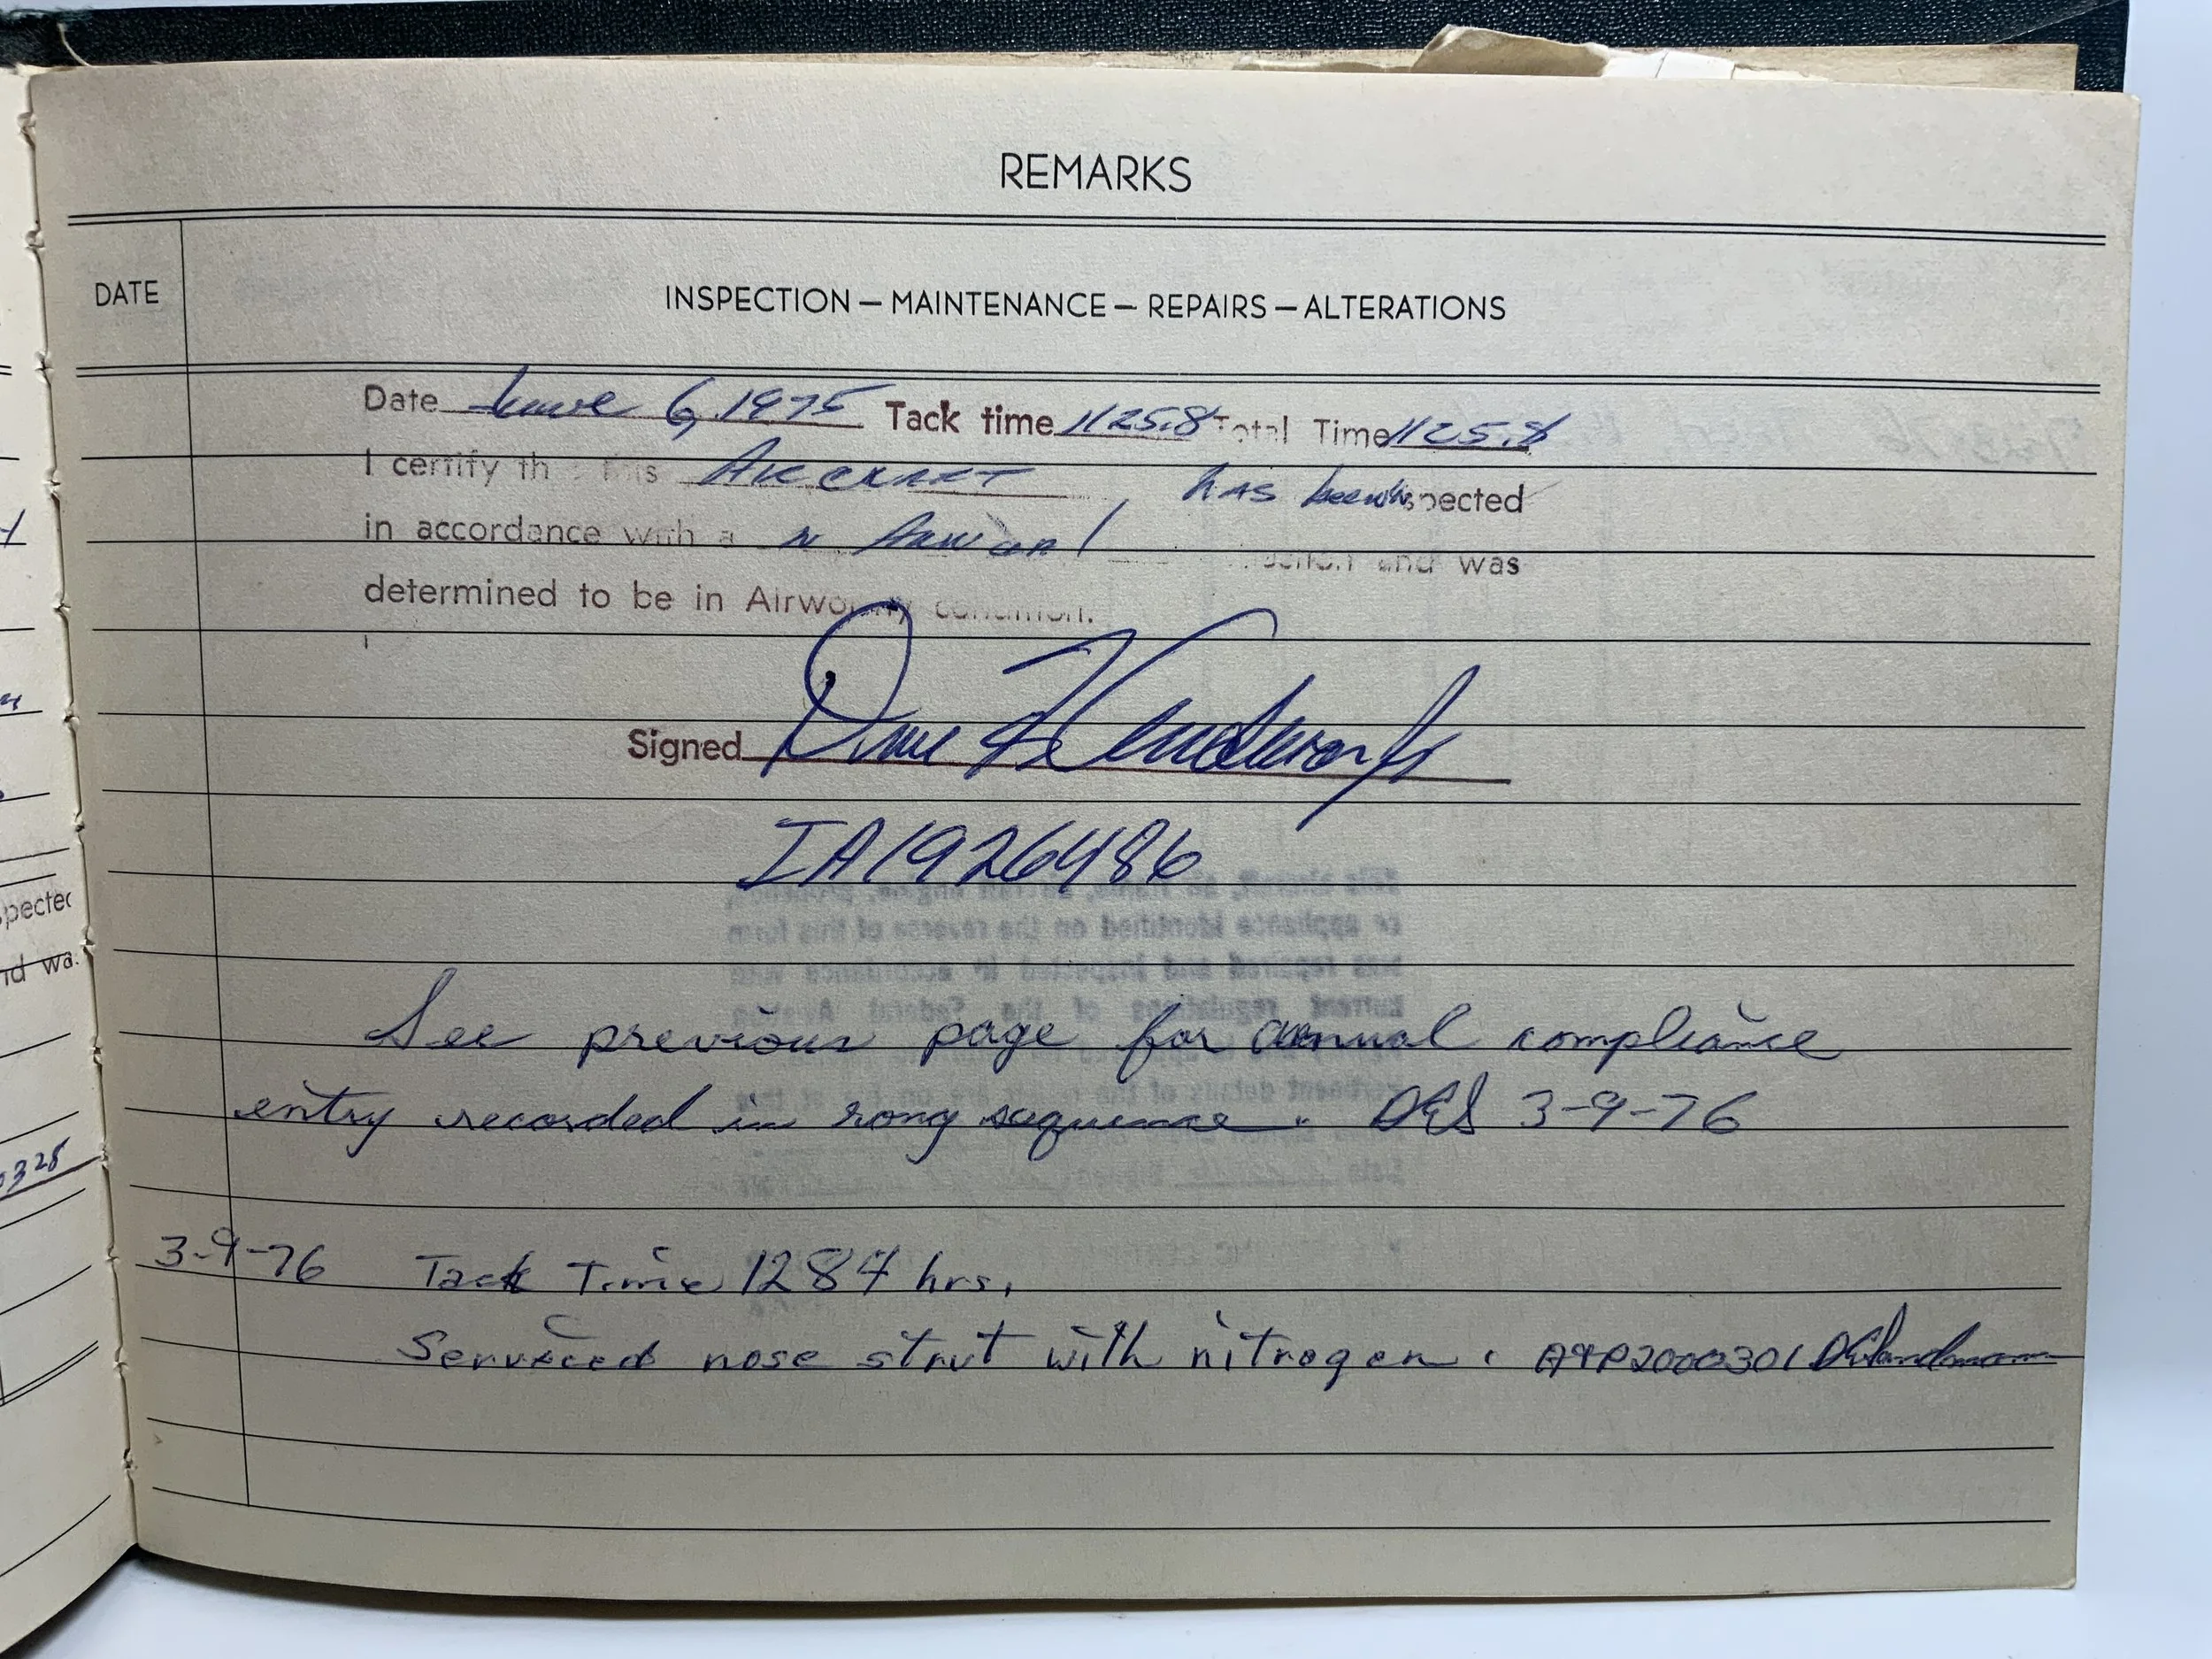 REMARKS
DATE
INSPECTION — MAINTENANCE — REPAIRS — ALTERATIONS
Date June 6, 1975 Tack time 1125.8 Total Time 1125.8
I certify th this Aircraft has been inspected
in accordance with a n Annual and was
determined to be in Airworthy condition.
Signed
IA1926486
See previous page for annual compliance
entry recorded in rong sequence. DES 3-9-76
3-9-76 Tack Time 1284 hrs.
Serviced nose strut with nitrogen. A&P2000301
pected
nd wa
0328